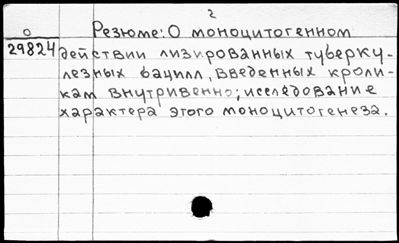 2
О Резюме: О моноцитогенном
29824 действии лизированных туверку-
лезных вацилл, введенных кроли-
кам внутривенно; исследование
характера этого моноцитогенеза.